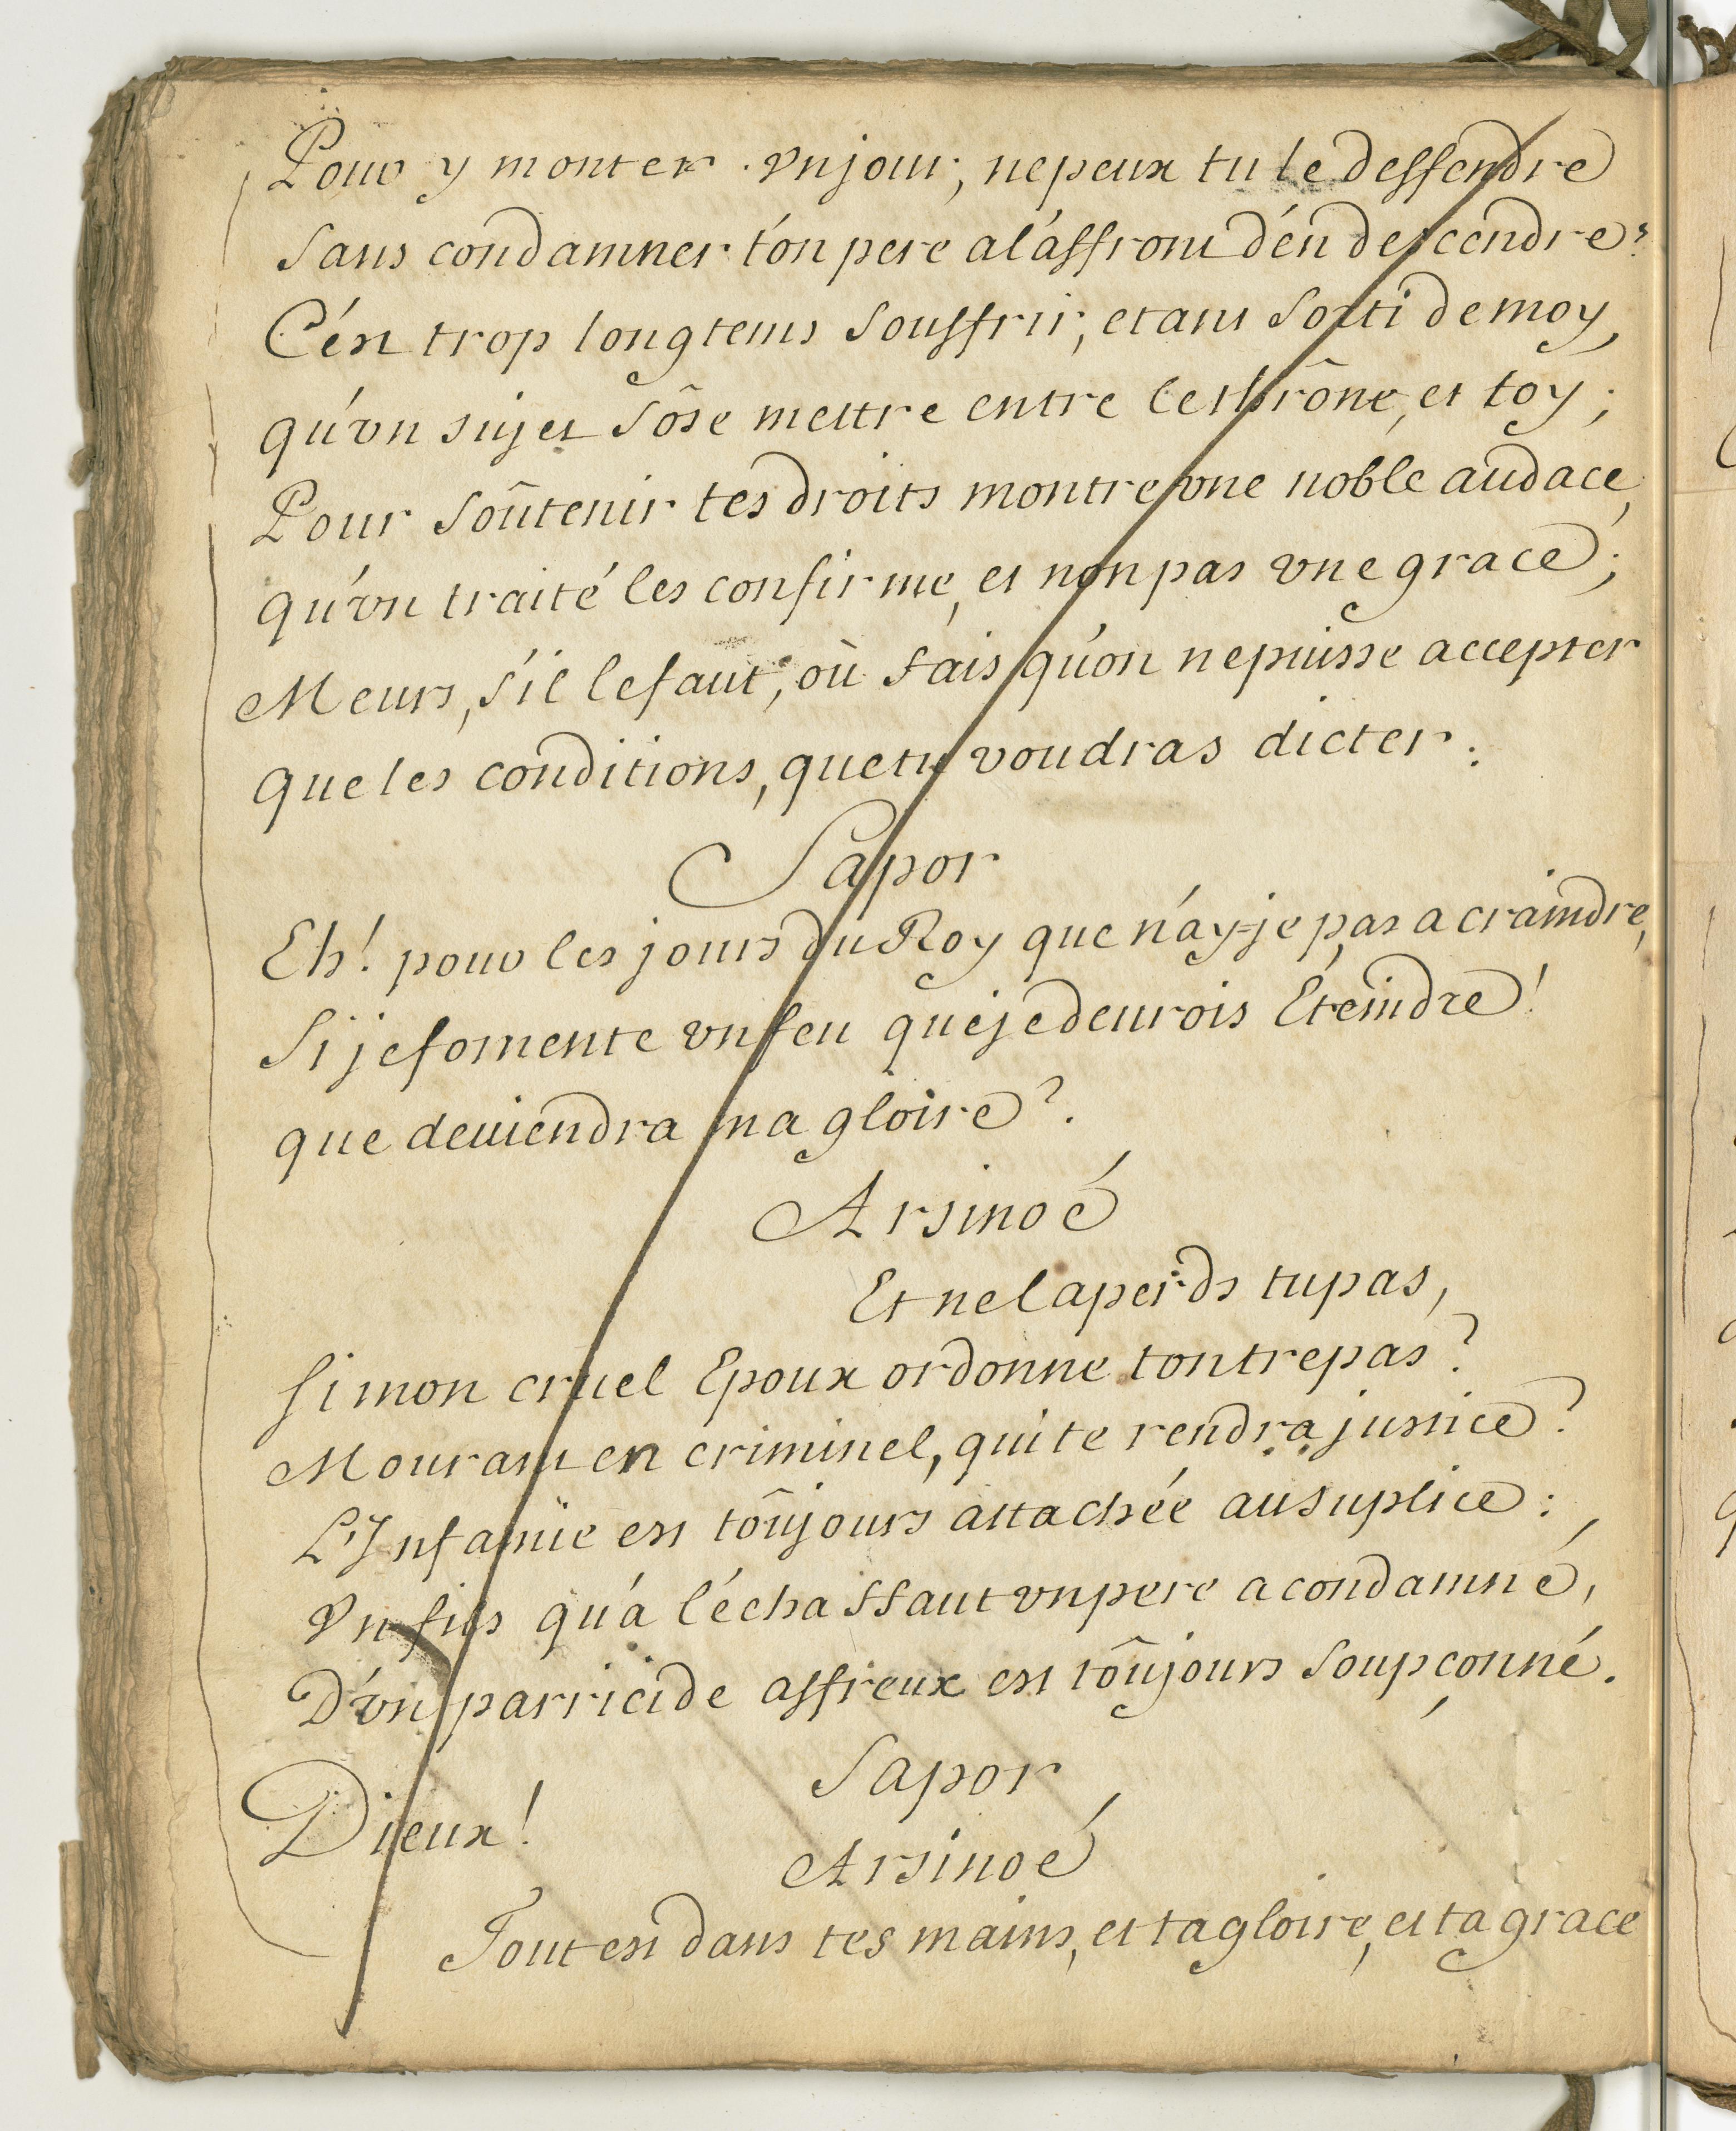 Pour y monter vn jour, ne peux tu le deffendre
Sans condamner ton pere a l'affront d'en descendre?
C'est trop longtems Souffrir, etant Sorti de moy,
qu'vn sujet s'ôse mettre entre le thrône, et toy;
Pour Soûtenir tes droits montre vne noble audace,
qu'vn traité les confirme, et non pas vne grace;
Meurs, s'il le faut, où fais qu'on ne puisse accepter
que les conditions, que tu voudras dicter.
Sapor
Eh! pour les jours du Roy que n'ay-je pas a craindre,
Si je fomente vn feu que je deurois Éteindre!
que deuiendra ma gloire?
Arsinoé
Et ne la perds tu pas,
Si mon cruel Epoux ordonne ton trepas?
Mourant en criminel, qui te rendra justice?
L'Infamïe est toûjours attachée au suplice:
Vn fils qu'a l'échaffaut vn pere a condamné,
D'vn parricide affreux est toûjours soupçonné.
Sapor
Dieux!
Arsinoé
Tout est dans tes mains, et ta gloire, et ta grace